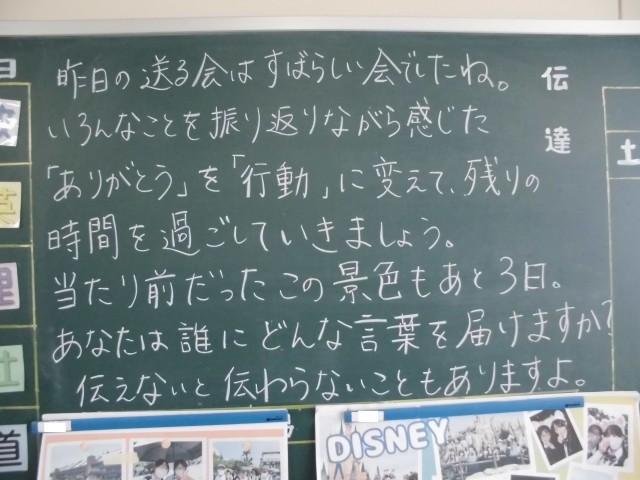 昨日の送る会はすばらしい会でしたね。
いろんなことを振り返りながら感じた
「ありがとう」を「行動」に変えて、残りの
時間を過ごしていきましょう。
当たり前だったこの景色もあと3日。
あなたは誰にどんな言葉を届けますか?
伝えないと伝わらないこともありますよ。
伝達
日
土
理
土
道
DISNEY